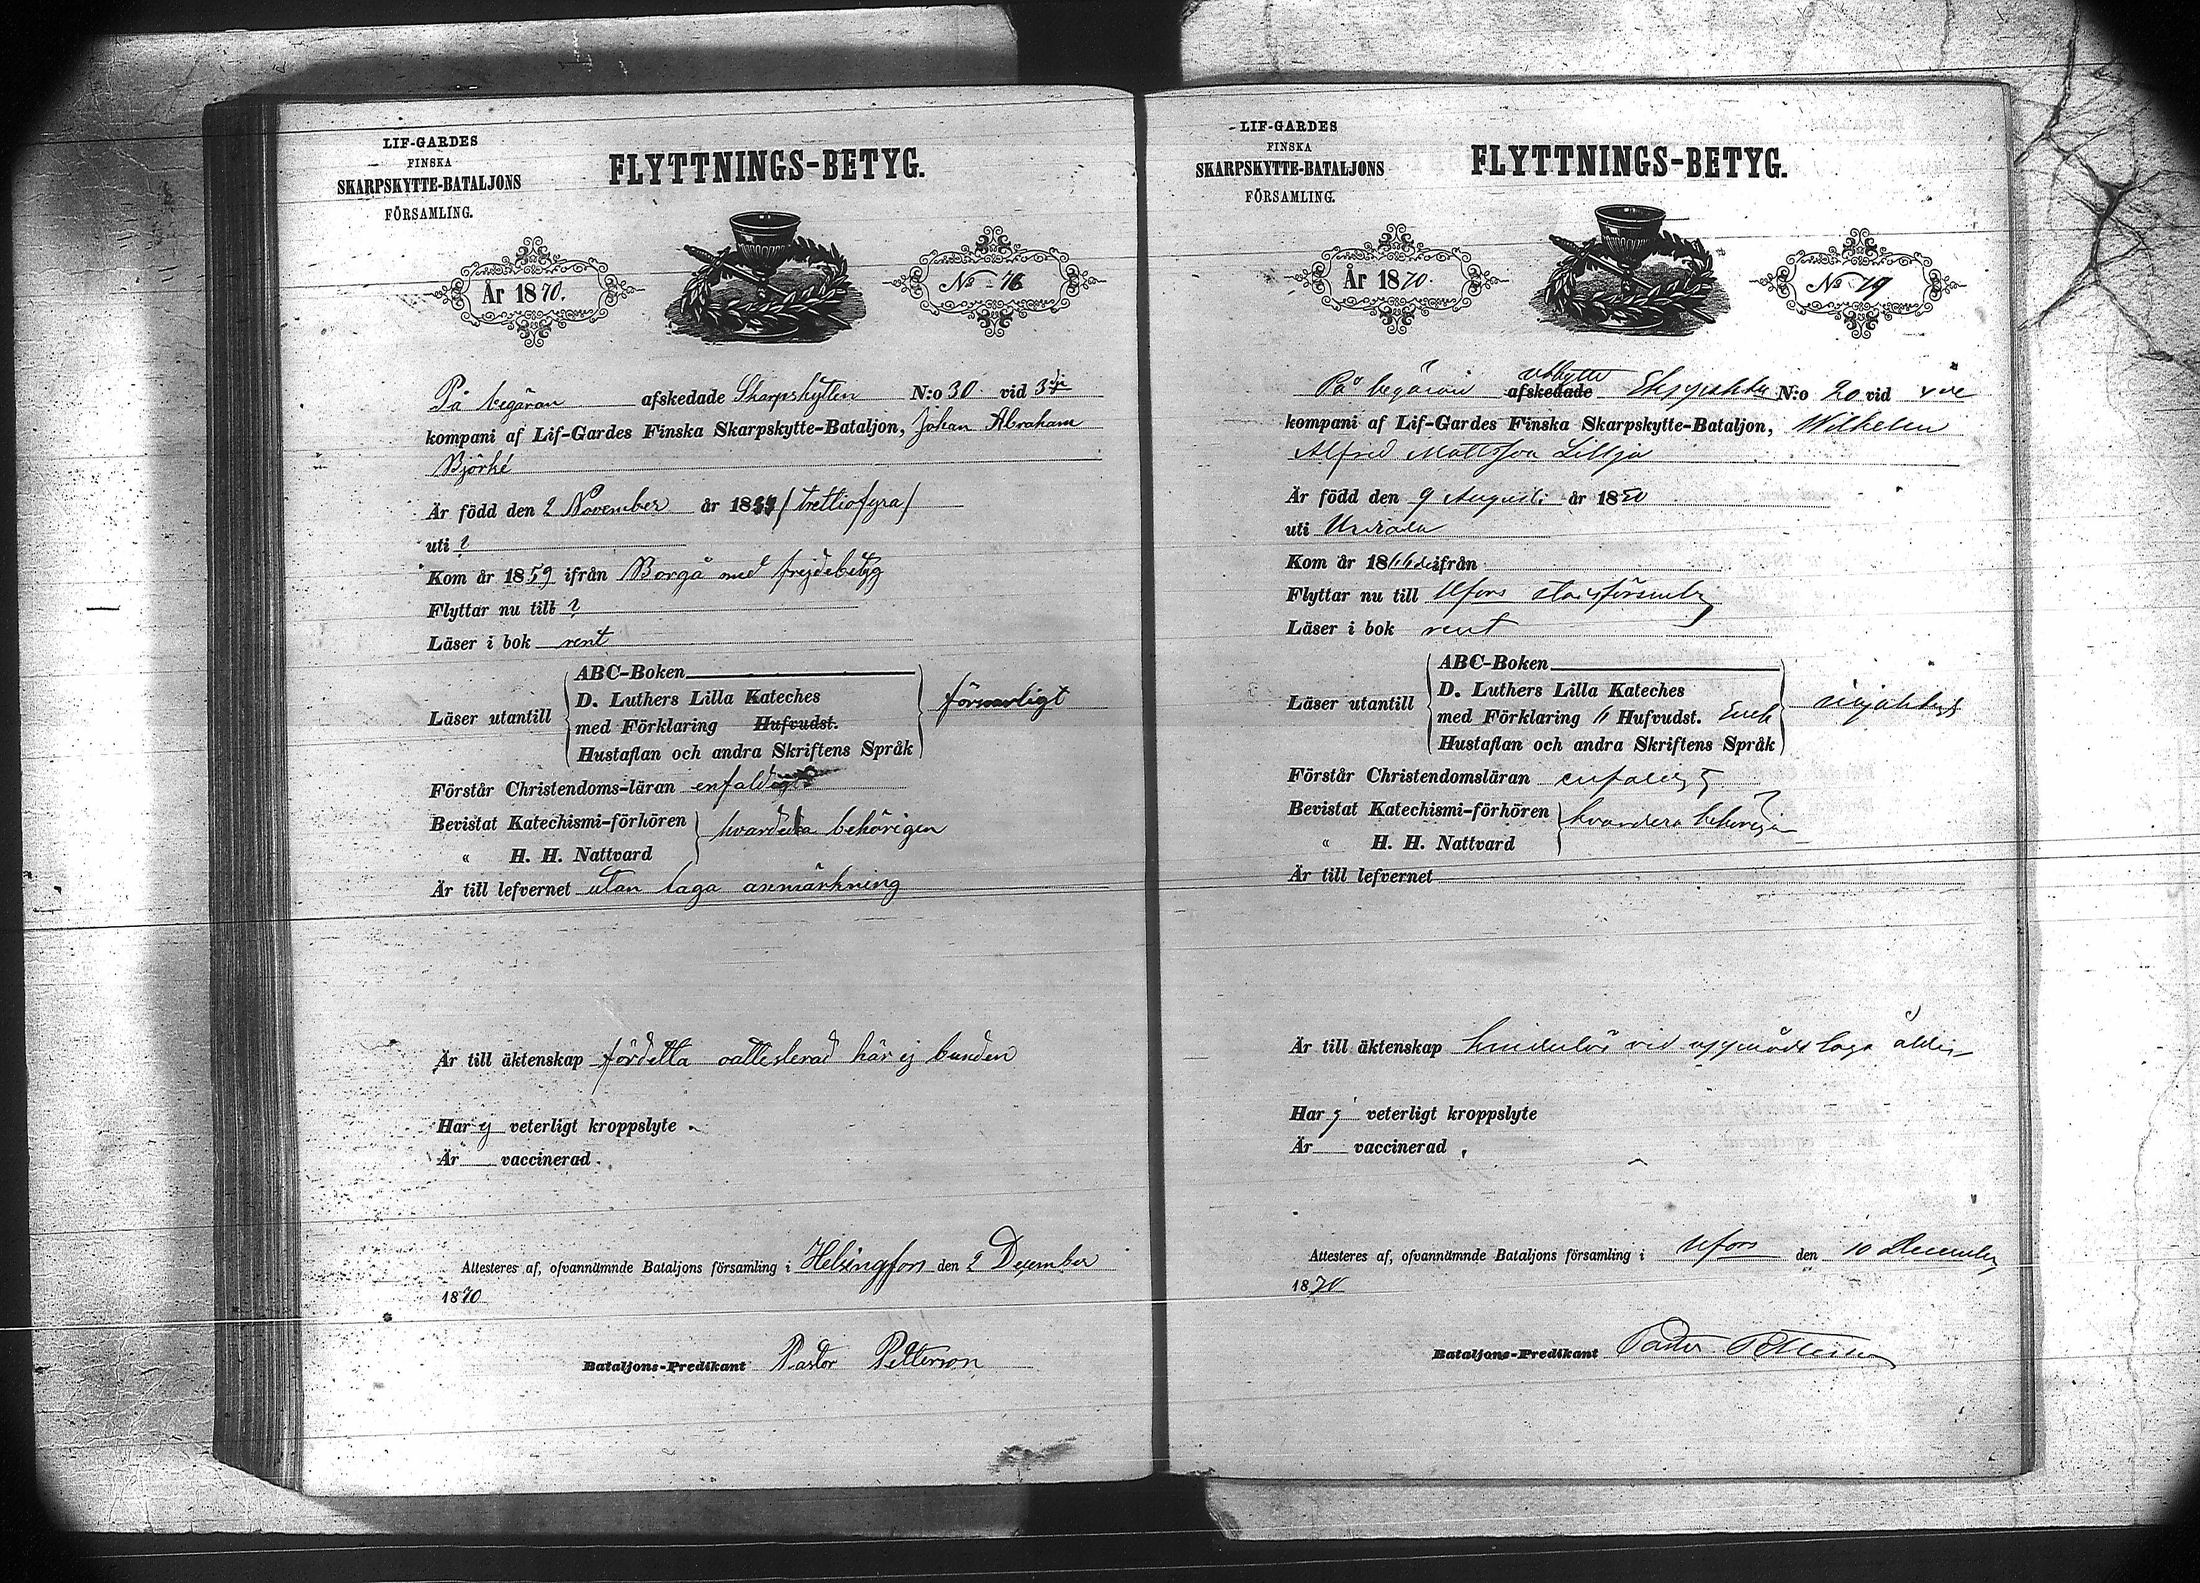 LIF-GARDES
FINSKA
SKARPSKYTTE-BATALJONS
FÖRSAMLING.
FLYTTNINGS-BETYG.
År 1870.
No 78
På begäran afskedade Skarpskytten N:o 30 vid 3dje
kompani af Lif-Gardes Finska Skarpskytte-Bataljon, Johan Abraham
Björké
Är född den 2 November år 1834 (trettiofyra)
uti ?
Kom år 1859 ifrån Borgå med frejdebetyg
Flyttar nu till ?
Läser i bok rent
ABC-Boken
Läser utantill D. Luthers Lilla Kateches
med Förklaring Hufvudst. försvarligt
Hustaflan och andra Skriftens Språk
Förstår Christendoms-läran enfaldigt
Bevistat Katechismi-förhören hvardera behörigen
« H. H. Nattvard
Är till lefvernet utan laga anmärkning
Är till äktenskap fördetta oattesterad här ej bunden
Har ej veterligt kroppslyte.
Är vaccinerad.
Attesteres af, ofvannämnde Bataljons församling i Helsingfors den 2 December
1870
Bataljons-Predikant Pastor Petterson
LIF-GARDES
FINSKA
SKARPSKYTTE-BATALJONS
FÖRSAMLING.
FLYTTNINGS-BETYG.
År 1870.
No 79
utbytte
På begäran afskedade N:o 20 vid
kompani af Lif-Gardes Finska Skarpskytte-Bataljon, Wilhelm
Alfred Mattsson Lillja
Är född den 9 Augusti år 1850
uti
Kom år 1866 ifrån
Flyttar nu till Hfors
Läser i bok rent
ABC-Boken
Läser utantill D. Luthers Lilla Kateches
med Förklaring Hufvudst.
Hustaflan och andra Skriftens Språk
Förstår Christendomsläran enfaldigt
Bevistat Katechismi-förhören hvardera behörigen
« H. H. Nattvard
Är till lefvernet
Är till äktenskap hinderlös vid uppnådd laga ålder
Har ej veterligt kroppslyte
Är vaccinerad.
Attesteres af, ofvannämnde Bataljons församling i Hfors den 10 December
1870
Bataljons-Predikant Pastor Petterson